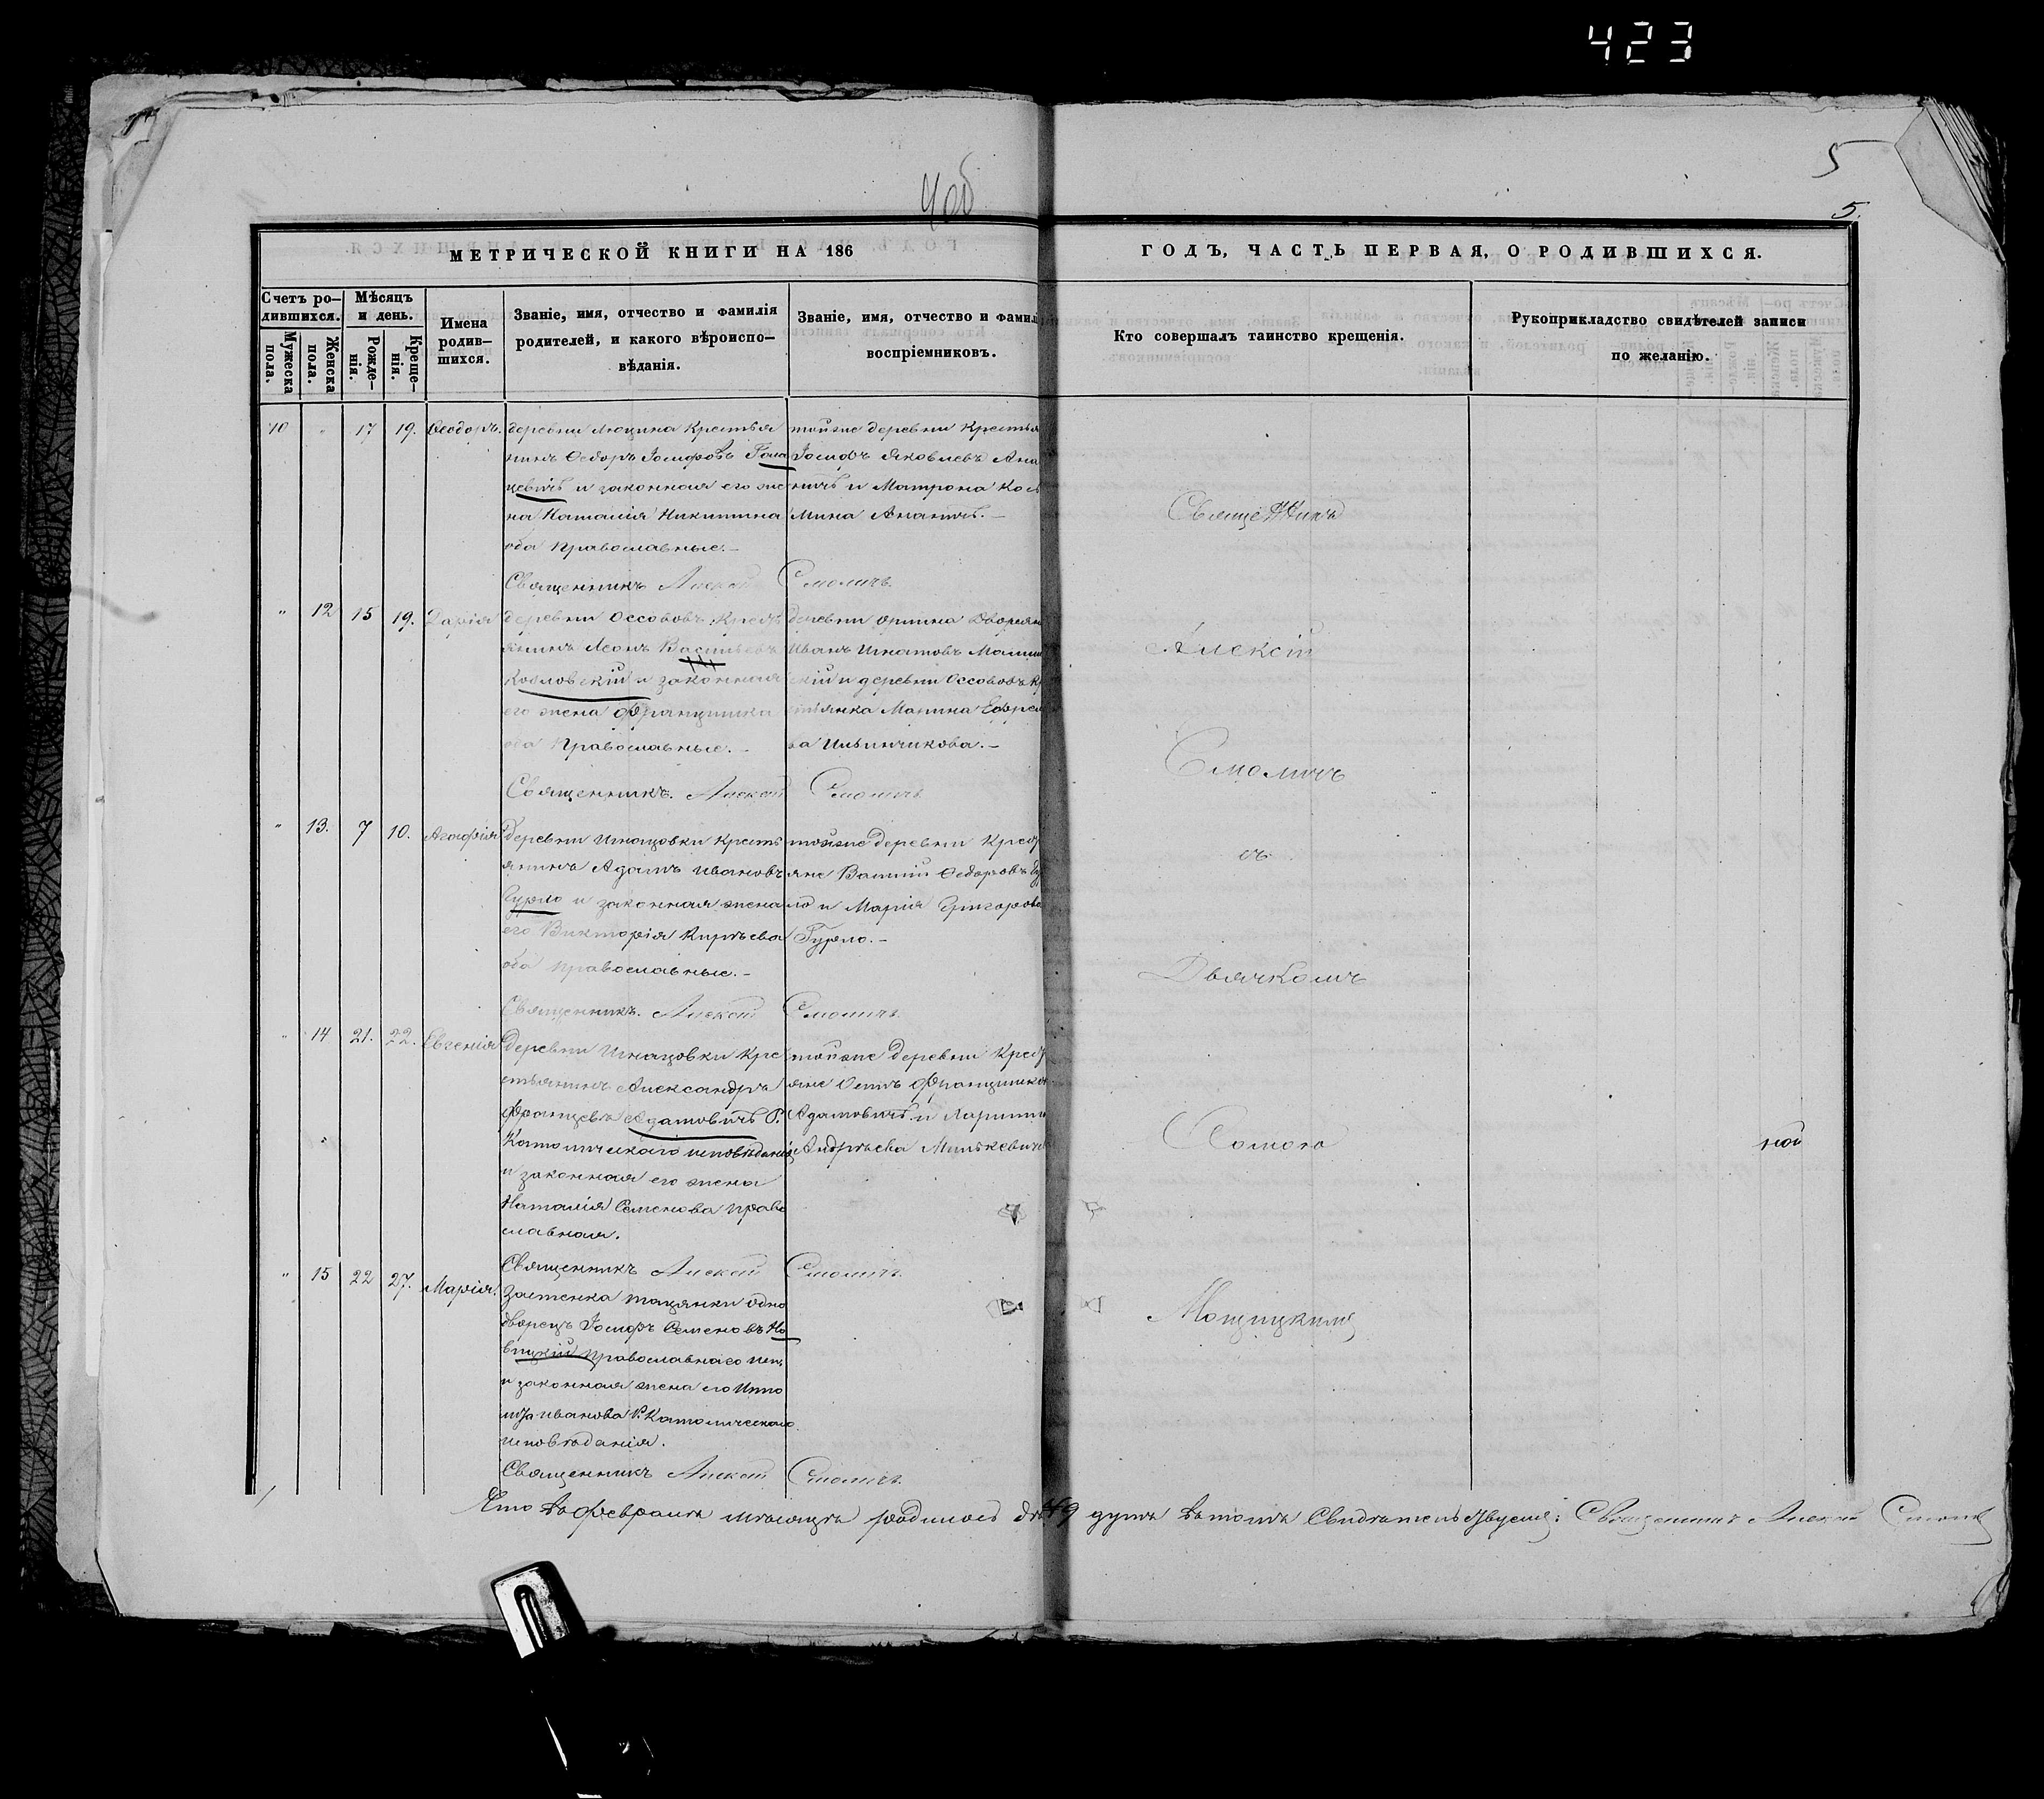 423
4об
5
5.
МЕТРИЧЕСКОЙ КНИГИ НА 186
ГОДЪ, ЧАСТЬ ПЕРВАЯ, О РОДИВШИХСЯ.
Счетъ ро-
дившихся.
Мужеска пола.
Женска пола.
Мѣсяцъ
и день.
Рожде-
нія.
Креще-
нія.
Имена
родив-
шихся.
Званіе, имя, отчество и фамилія
родителей, и какого вѣроиспо-
вѣданія.
Званіе, имя, отчество и фамил
воспріемниковъ.
Кто совершалъ таинство крещенія.
Рукоприкладство свидѣтелей записи
по желанію.
10 " 17 19. Ѳеодоръ.
деревни Люцина Крестья
нинъ Ѳедоръ Іосифовъ Гома
цевичъ и законная его же
на Наталія Никитина
оба Православные.
тойже деревни Крестья
Іосифъ Яковлевъ Ана
ничъ и Матрона Кось
мина Ананичъ.
Священникъ Алексій Смоличъ
" 12 15 19. Дарія
деревни Оссововъ Крест
янинъ Леонъ Васильевъ
Козловскій и законная
его жена Францишка
оба Православные.
деревни Орлина Дворян
Иванъ Игнатовъ
скій и деревни Оссововъ Кр
стьянка Марина Ефрем
ва Ильинчикова.
Священникъ. Алексій Смоличъ
" 13. 7 10. Агафія
деревни Игнацовки Кресть
янинъ Адамъ Ивановъ
Гурло и законная жена
его Викторія Кирѣева
оба Православные.
тойже деревни Крест
яне Василій Ѳедоровъ Гур
ло и Марія Григорова
Гурло.
Священникъ. Алексій Смоличъ.
" 14 21. 22. Евгенія
деревни Игнацовки Кре
стьянинъ Александръ
Францевъ Адамовичъ Р.
Католическаго исповѣданія
и законная его жена
Наталія Семенова Право
славная.
тойже деревни Крест
яне Францишков
Адамовичъ и
Андрѣева Милькевичъ
Священникъ Алексій Смоличъ.
" 15 22 27. Марія.
Застенка Тацянки одно
дворецъ Іосифъ Семеновъ Но
вицкій Православнаго исп.
и законная жена его Иппо
лита Иванова Р. Католическаго
исповѣданія.
Священникъ Алексій Смоличъ.
Священникъ
Алексій
Смоличъ
съ
Дьячкомъ
Ѳомою
ною
Мощицкимъ
Что въ февралѣ мѣсяцѣ родилось душъ въ томъ Свидѣтельствуемъ: Священникъ Алексій Смоличъ